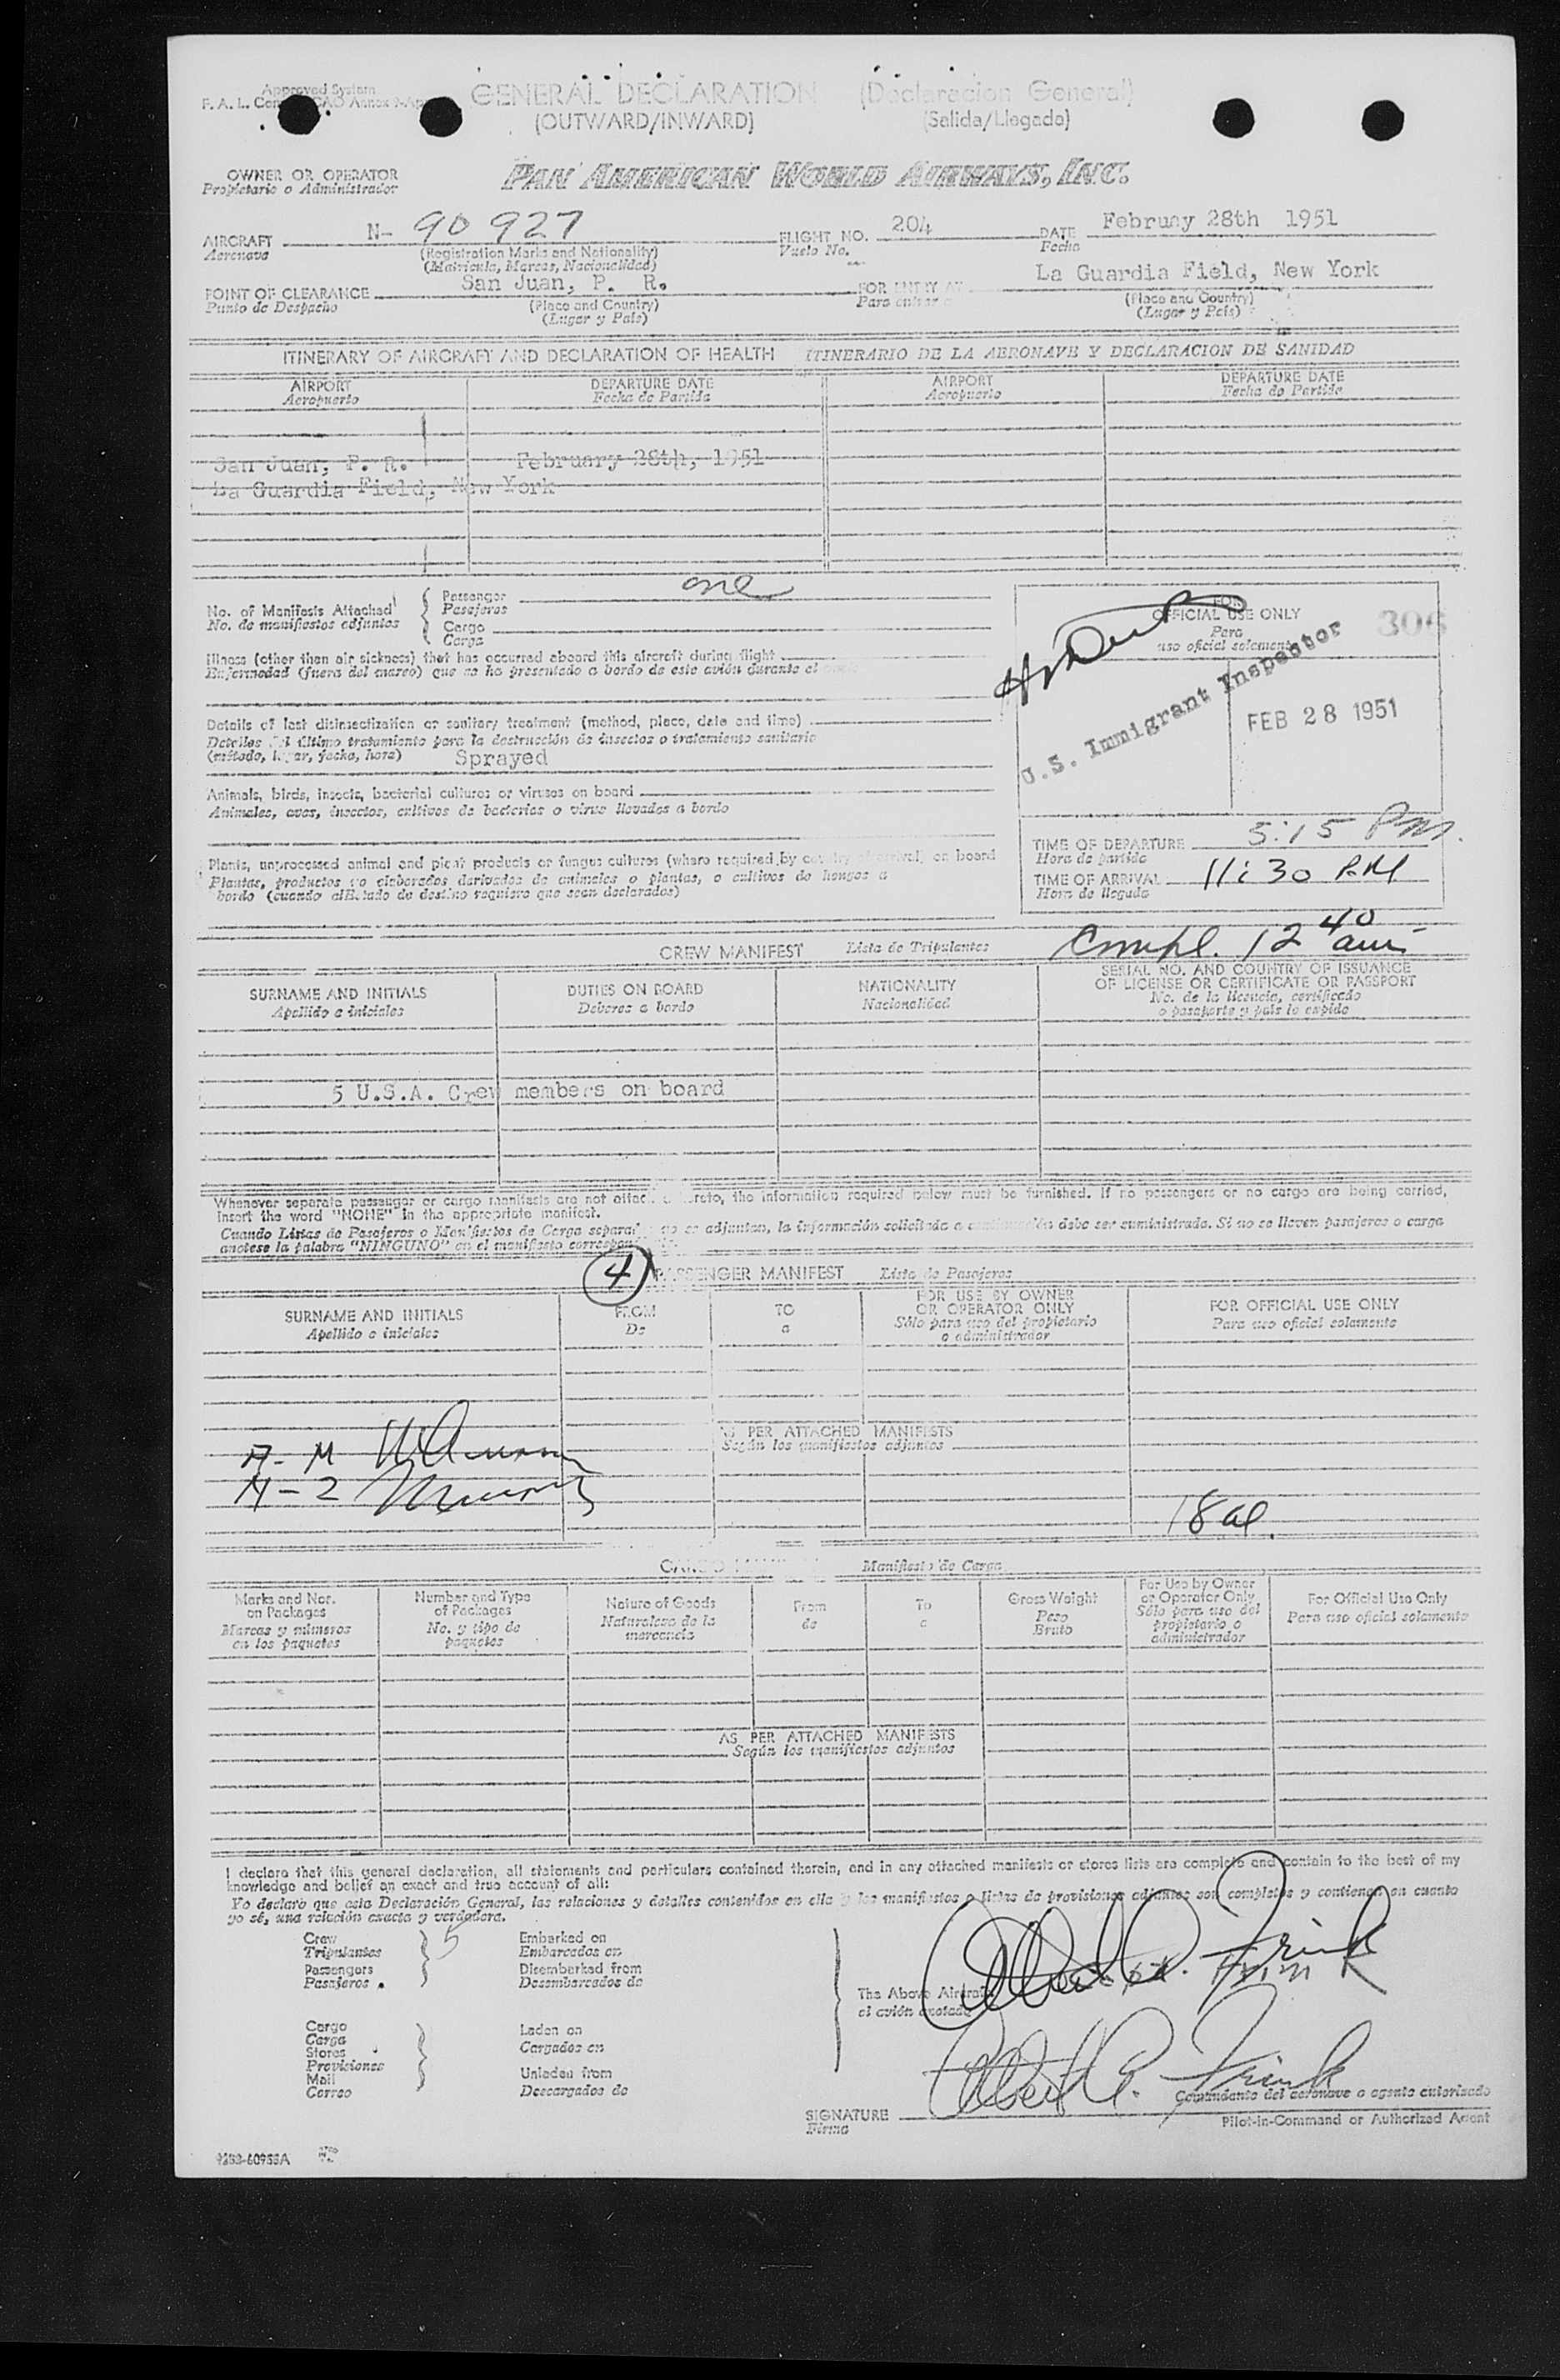 Approved System
F. A. L.
GENERAL DECLARATION (Declaracion General)
(OUTWARD/INWARD) (Salida/Llegada)
OWNER OR OPERATOR
Propietario o Administrador
PAN AMERICAN WORLD AIRWAYS, INC.
AIRCRAFT N- 90927 FLIGHT NO. 204 DATE Februay 28th 1951
Aeronave (Registration Marks and Nationality) Vuelo No. Fecha
(Matricula, Marcas, Nacionalidad)
POINT OF CLEARANCE San Juan, P. R. FOR ENTRY AT La Guardia Field, New York
Punto de Despacho (Place and Country) Para entrar a (Place and Country)
(Lugar y Pais) (Lugar y Pais)
ITINERARY OF AIRCRAFT AND DECLARATION OF HEALTH ITINERARIO DE LA AERONAVE Y DECLARACION DE SANIDAD
AIRPORT DEPARTURE DATE AIRPORT DEPARTURE DATE
Aeropuerto Fecha de Partida Aeropuerto Fecha de Partida
San Juan, P. R. February 28th, 1951
La Guardia Field, New York
No. of Manifests Attached Passenger one
No. de manifiestos adjuntos Pasajeros
Cargo
Carga
Illness (other than air sickness) that has occurred aboard this aircraft during flight
Enfermedad (fuera del mareo) que se ha presentado a bordo de este avión durante el
Details of last disinsectization or sanitary treatment (method, place, date and time)
Detalles del último tratamiento para la destrucción de insectos o tratamiento sanitario
(método, lugar, fecha, hora) Sprayed
Animals, birds, insects, bacterial cultures or viruses on board
Animales, aves, insectos, cultivos de bacterias o virus llevados a bordo
Plants, unprocessed animal and plant products or fungus cultures (where required by country of arrival) on board
Plantas, productos no elaborados derivados de animales o plantas, o cultivos de hongos a
bordo (cuando el Estado de destino requiere que sean declarados)
FOR
OFFICIAL USE ONLY
Para
uso oficial solamente
306
U.S. Immigrant Inspector
FEB 28 1951
TIME OF DEPARTURE 5:15 Pm.
Hora de partida
TIME OF ARRIVAL 11:30 P.M
Hora de llegada
Compl. 12 40 am
CREW MANIFEST Lista de Tripulantes
SURNAME AND INITIALS DUTIES ON BOARD NATIONALITY SERIAL NO. AND COUNTRY OF ISSUANCE
OF LICENSE OR CERTIFICATE OR PASSPORT
Apellido e iniciales Deberes a bordo Nacionalidad No. de la licencia, certificado
o pasaporte y pais lo expide
5 U.S.A. Crew members on board
Whenever separate passenger or cargo manifests are not attac hereto, the information required below must be furnished. If no passengers or no cargo are being carried,
insert the word "NONE" in the appropriate manifest.
Cuando Listas de Pasajeros o Manifiestos de Carga separa no se adjunten, la información solicitada a continuación debe ser suministrada. Si no se lleven pasajeros o carga
anotese la palabra "NINGUNO" en el manifiesto
4 PASSENGER MANIFEST Lista de Pasajeros
SURNAME AND INITIALS FROM TO FOR USE BY OWNER
OR OPERATOR ONLY FOR OFFICIAL USE ONLY
Apellido e iniciales De a Sólo para uso del propietario
o administrador Para uso oficial solamente
AS PER ATTACHED MANIFESTS
Según los manifiestos adjuntos
A- M
N-2
18 al.
Manifiesto de Carga
Marks and Nos.
on Packages
Marcas y números
en los paquetes
Number and Type
of Packages
No. y tipo de
paquetes
Nature of Goods
Naturaleza de la
mercancia
From
de
To
a
Gross Weight
Peso
Bruto
For Use by Owner
or Operator Only
Sólo para uso del
propietario o
administrador
For Official Use Only
Para uso oficial solamente
AS PER ATTACHED MANIFESTS
Según los manifiestos adjuntos
I declare that this general declaration, all statements and particulars contained therein, and in any attached manifests or stores lists are complete and contain to the best of my
knowledge and belief an exact and true account of all:
Yo declaro que esta Declaración General, las relaciones y detalles contenidos en ella y los manifiestos o listas de provisiones adjuntos son completos y contienen en cuanto
yo sé, una relación exacta y verdadera.
Crew 5 Embarked on
Tripulantes Embarcados en
Passengers Disembarked from
Pasajeros Desembarcados de
The Above Aircraft
el avión anotado
Albert A. Frink
Cargo Laden on
Carga Cargados en
Stores
Provisiones
Mail Unladen from
Correo Descargados de
Albert A. Frink
Comandante del aeronave o agente autorizado
SIGNATURE
Firma
Pilot-in-Command or Authorized Agent